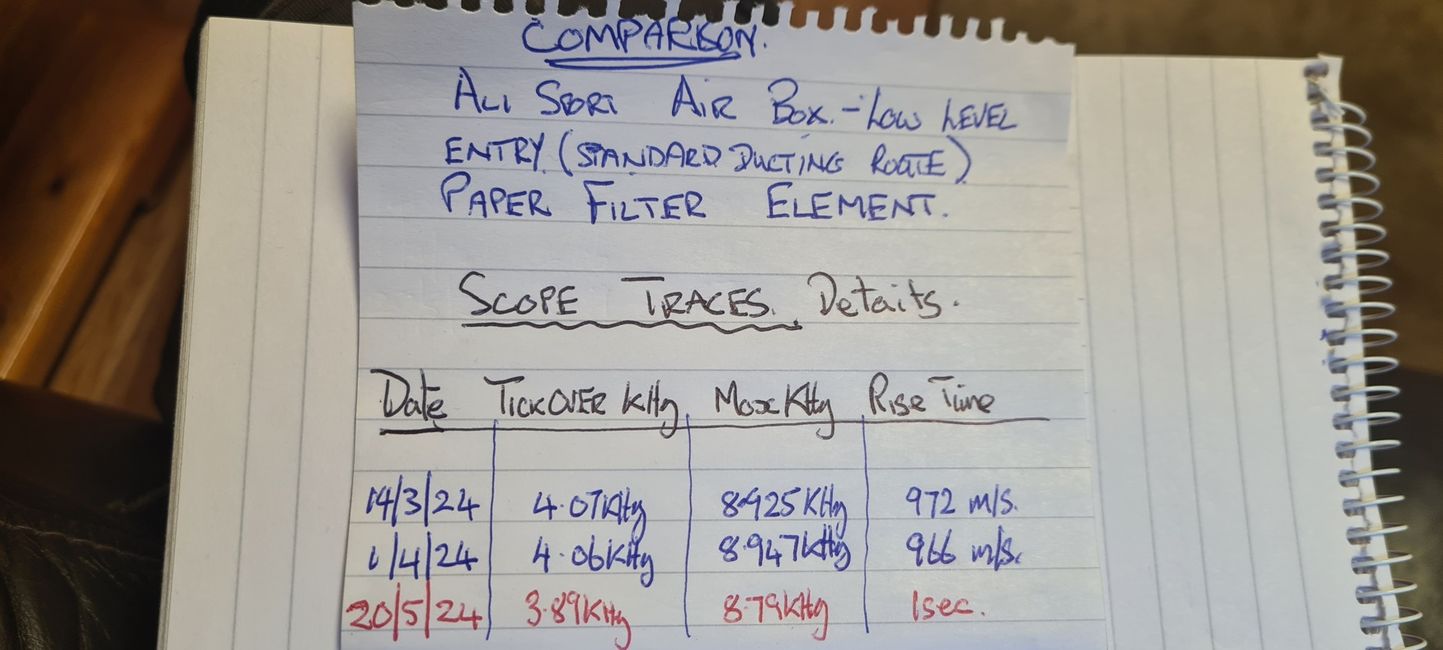 COMPARISON.
ALI SPORT AIR BOX. - LOW LEVEL
ENTRY (STANDARD DUCTING ROUTE)
PAPER FILTER ELEMENT.
SCOPE TRACES. Details.
Date TICKOVER KHz Max KHz Rise Time
14/3/24 4.07KHz 8.925KHz 972 m/s.
1/4/24 4.06KHz 8.947KHz 966 m/s.
20/5/24 3.89KHz 8.79KHz 1sec.